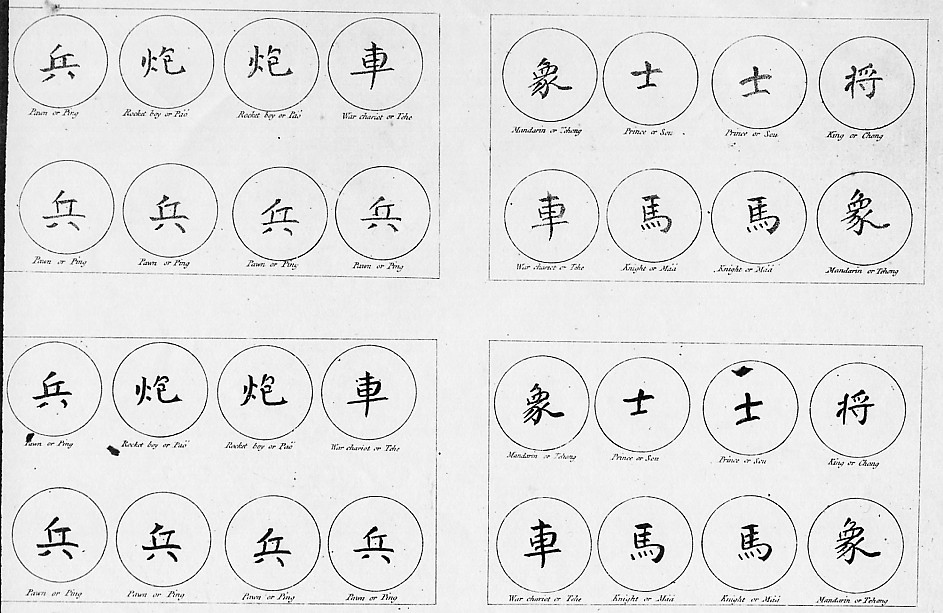 兵 炮 炮 車
Pawn or Ping Rocket boy or Paó Rocket boy or Paó War chariot or Tche
兵 兵 兵 兵
Pawn or Ping Pawn or Ping Pawn or Ping Pawn or Ping
象 士 士 将
Mandarin or Tchong Prince or Sou Prince or Sou King or Chong
車 馬 馬 象
War chariot or Tche Knight or Máá Knight or Máá Mandarin or Tchong
兵 炮 炮 車
Pawn or Ping Rocket boy or Paó Rocket boy or Paó War chariot or Tche
兵 兵 兵 兵
Pawn or Ping Pawn or Ping Pawn or Ping Pawn or Ping
象 士 士 将
Mandarin or Tchong Prince or Sou Prince or Sou King or Chong
車 馬 馬 象
War chariot or Tche Knight or Máá Knight or Máá Mandarin or Tchong